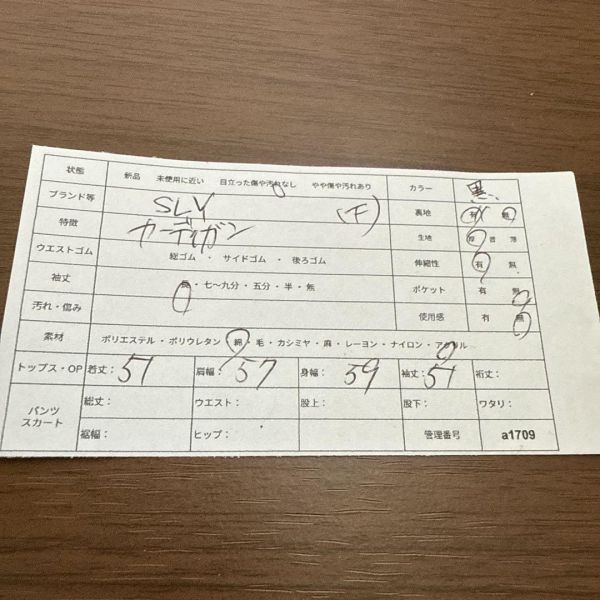 状態 新品 未使用に近い 目立った傷や汚れなし やや傷や汚れあり カラー 黒
ブランド等 SLY (F) 裏地 有 無
特徴 カーディガン 生地 厚 普 薄
ウエストゴム 総ゴム ・ サイドゴム ・ 後ろゴム 伸縮性 有 無
袖丈 長・七〜九分・五分・半・無 ポケット 有 無
汚れ・傷み 使用感 有 無
素材 ポリエステル・ポリウレタン・綿・毛・カシミヤ・麻・レーヨン・ナイロン・アクリル
トップス・OP 着丈: 51 肩幅: 57 身幅: 59 袖丈: 51 裄丈:
パンツ スカート 総丈: ウエスト: 股上: 股下: ワタリ:
裾幅: ヒップ: 管理番号 a1709